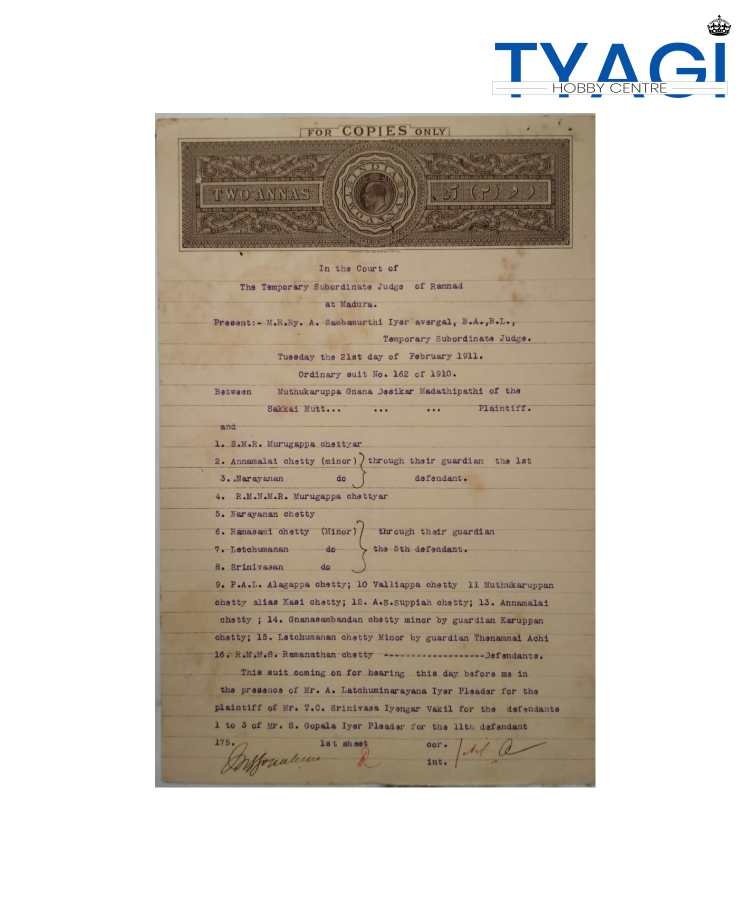 TYAGI
HOBBY CENTRE
FOR COPIES ONLY
TWO ANNAS
INDIA
TWO ANNAS
In the Court of
The Temporary Subordinate Judge of Ramnad
at Madura.
Present:- M.R.Ry. A. Sambamurthi Iyer avergal, B.A.,B.L.,
Temporary Subordinate Judge.
Tuesday the 21st day of February 1911.
Ordinary suit No. 162 of 1910.
Between Muthukaruppa Gnana Desikar Madathipathi of the
Sakkai Mutt... ... ... Plaintiff.
and
1. S.M.R. Murugappa chettyar
2. Annamalai chetty (minor) through their guardian the 1st
3. Narayanan do defendant.
4. R.M.N.M.R. Murugappa chettyar
5. Narayanan chetty
6. Ramasami chetty (Minor) through their guardian
7. Letchumanan do the 5th defendant.
8. Srinivasan do
9. P.A.L. Alagappa chetty; 10 Valliappa chetty 11 Muthukaruppan
chetty alias Kasi chetty; 12. A.S.Suppiah chetty; 13. Annamalai
chetty ; 14. Gnanasambandan chetty minor by guardian Karuppan
chetty; 15. Letchumanan chetty Minor by guardian Thenammai Achi
16. R.M.M.S. Ramanathan chetty -------------------Defendants.
This suit coming on for hearing this day before me in
the presence of Mr. A. Latchuminarayana Iyer Pleader for the
plaintiff of Mr. T.C. Srinivasa Iyengar Vakil for the defendants
1 to 3 of Mr. S. Gopala Iyer Pleader for the 11th defendant
175. 1st sheet cor.
int.